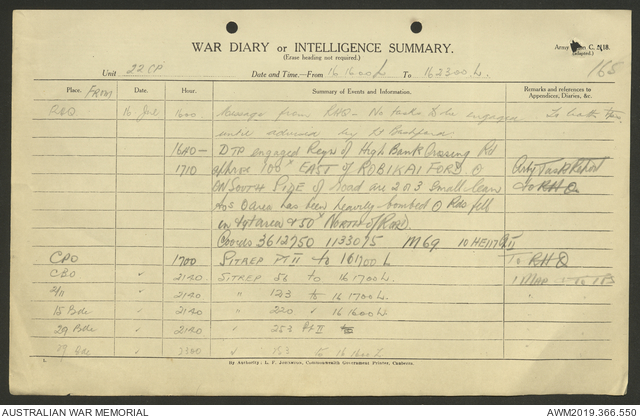 WAR DIARY or INTELLIGENCE SUMMARY.
(Erase heading not required.)
Army C. 2118.
(adapted.)
165
Unit 22 CP
Date and Time.—From 16 1600 L To 16 2300 L.
Place. FROM Date. Hour. Summary of Events and Information. Remarks and references to Appendices, Diaries, &c.
RHQ 16 June 1600 Message from RHQ - No tasks to be engaged
until advised by Lt
1640- DTP engaged Regs of High Bank Crossing Rd
1710 approx 100x EAST of ROBIKAI FORD. Arty Task Report
ON SOUTH SIDE of road are 2 or 3 small to RHQ
area has been heavily bombed Rds fell
in tgt area + 50x NORTH of ROAD.
Coords 3612750 1133075 M69 10 HE117
CPO 1700 SITREP PT II to 161700 L To RHQ
CBO " 2140 SITREP 56 to 16 1700 L
2/11 " 2140 " 123 to 16 1700 L.
15 Bde " 2140 " 220 16 1600 L
29 Bde " 2140 " 253 Pt II
29 Bde 2300 " 153 to 16
By Authority: L. F. Johnston, Commonwealth Government Printer, Canberra.
AUSTRALIAN WAR MEMORIAL
AWM2019.366.550